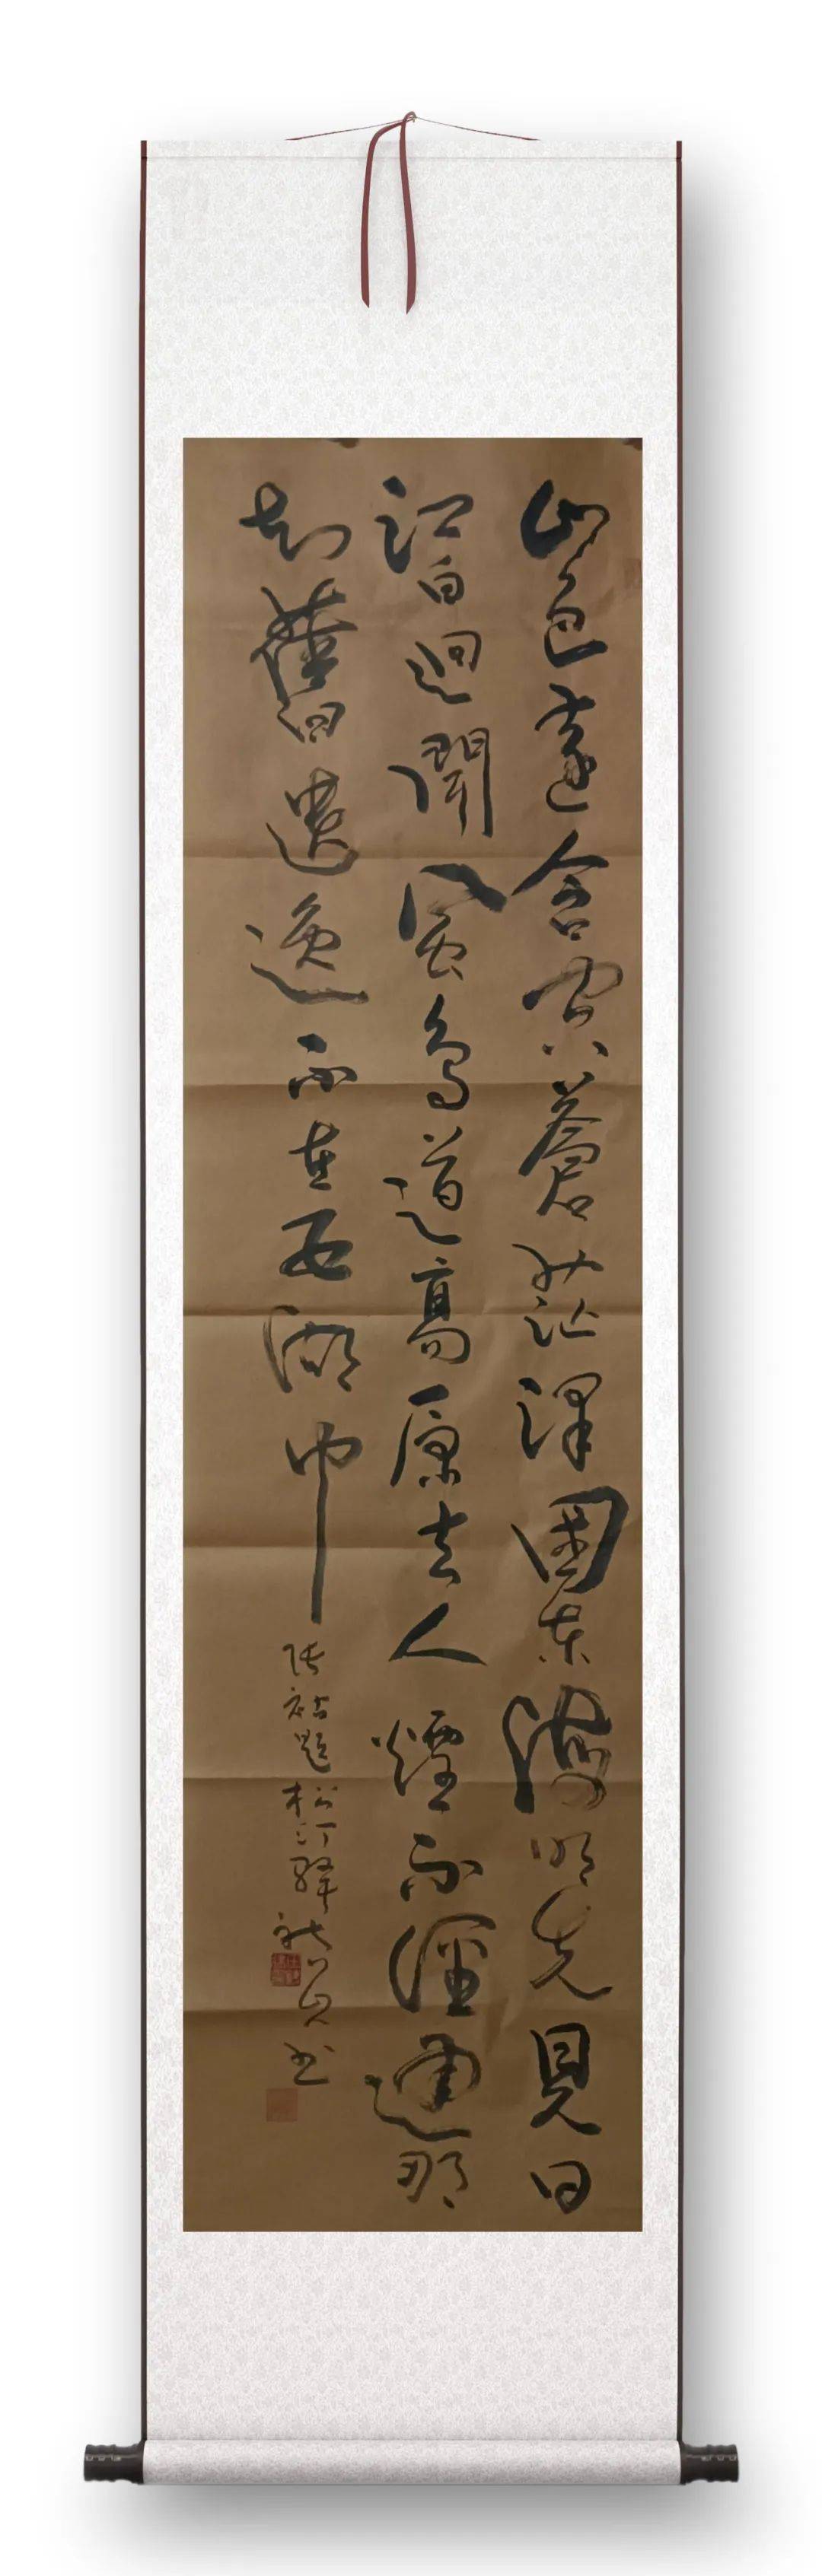 山色遠含空蒼茫澤國東海明先見日
江白迥聞風鳥道高原去人煙小徑通那
知舊遺逸不在五湖中
張祜題松汀驛 書